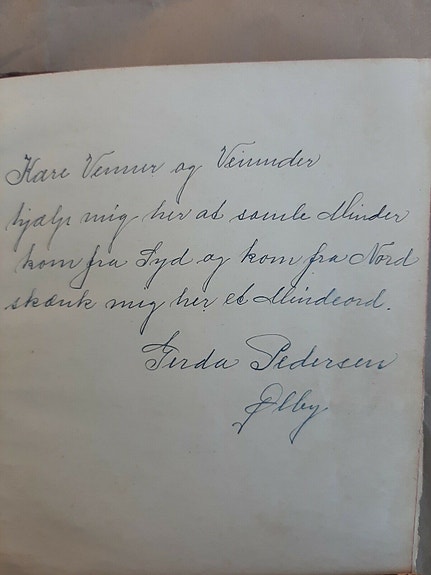 Kære Venner og Veninder
hjælp mig her at samle Minder
kom fra Syd og kom fra Nord
skænk mig her et Mindeord.
Gerda Pedersen
Ølby